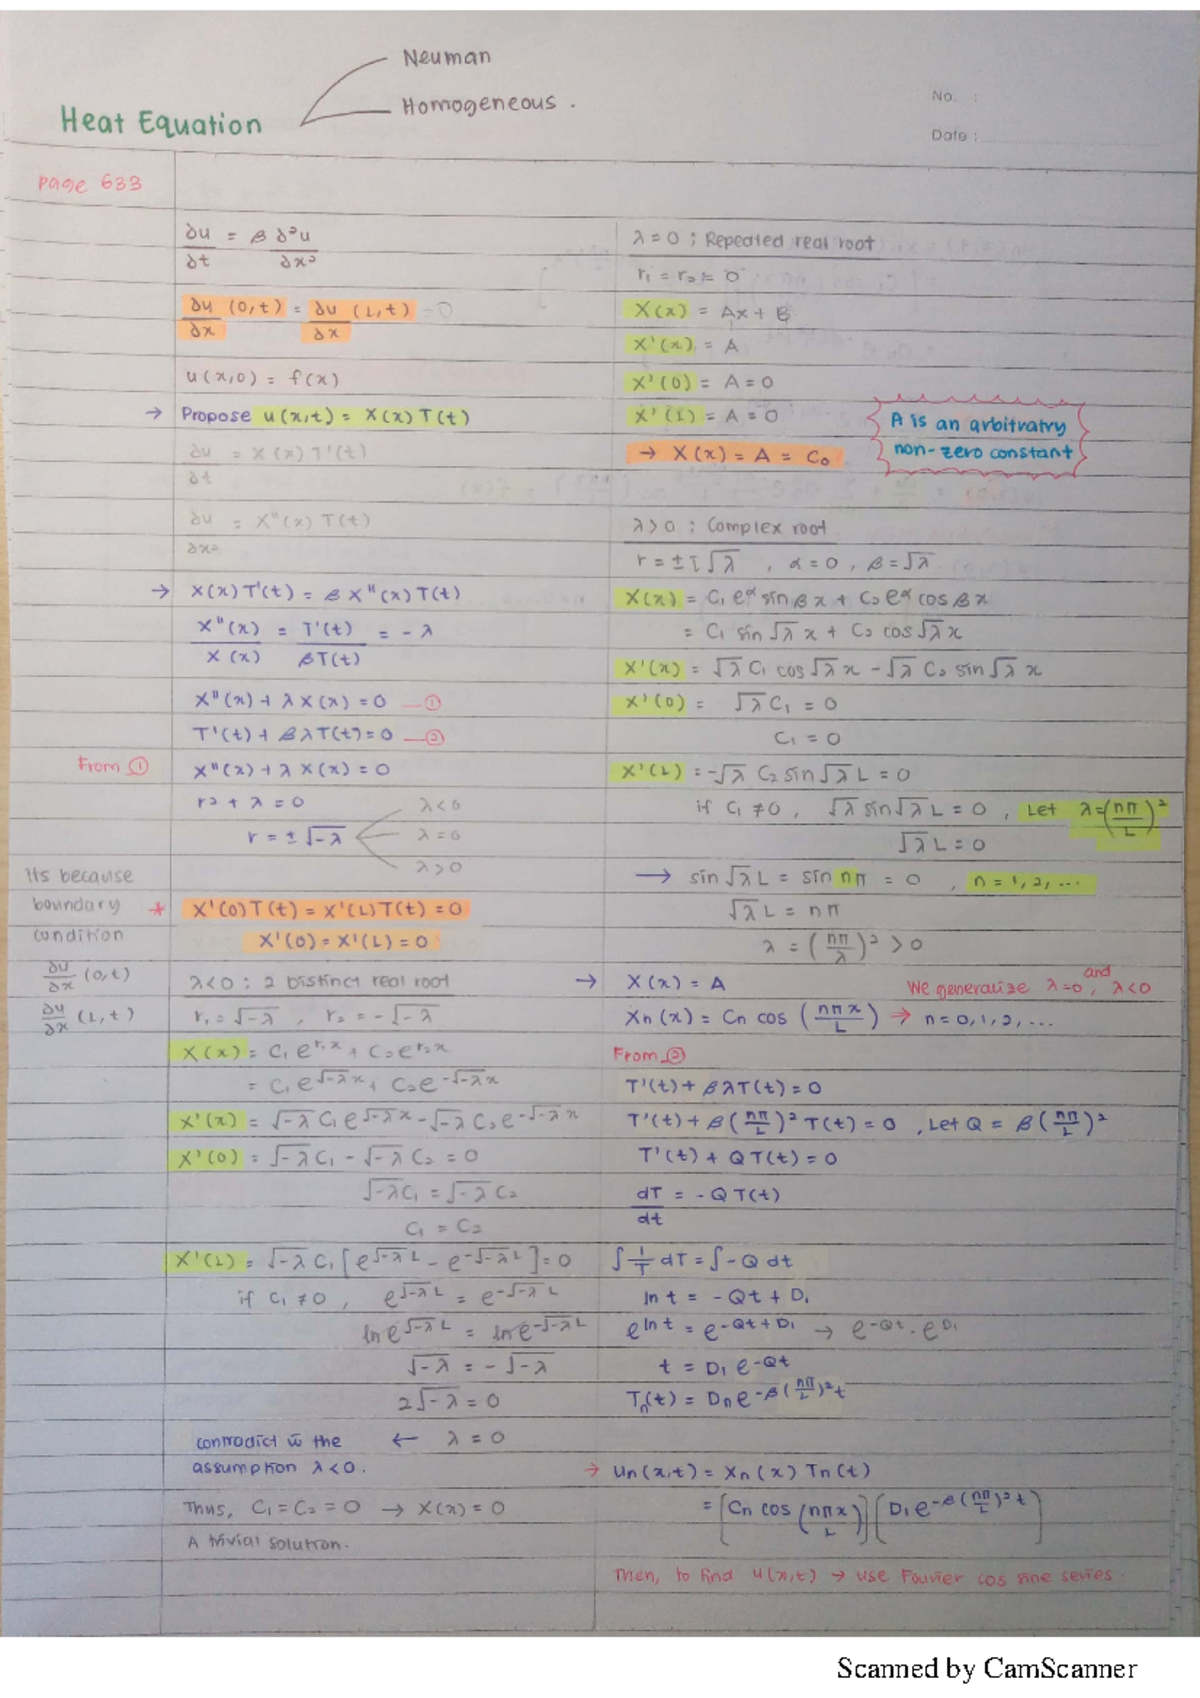 Neuman
Homogeneous .
Heat Equation
No. :
Date :
Page 633
∂u/∂t = β ∂²u/∂x²
∂u/∂x (0,t) = ∂u/∂x (L,t) = 0
u(x,0) = f(x)
→ Propose u(x,t) = X(x) T(t)
∂u/∂t = X(x) T'(t)
∂u/∂x² = X"(x) T(t)
→ X(x) T'(t) = β X"(x) T(t)
X"(x)/X(x) = T'(t)/βT(t) = - λ
X"(x) + λ X(x) = 0 — ①
T'(t) + βλT(t) = 0 — ②
From ① X"(x) + λ X(x) = 0
r² + λ = 0
r = ± √-λ
λ<0
λ=0
λ>0
Its because
boundary
condition
∂u/∂x (0,t)
∂u/∂x (L,t)
* X'(0)T(t) = X'(L)T(t) = 0
X'(0) = X'(L) = 0
λ<0 : 2 Distinct real root
r₁ = √-λ , r₂ = - √-λ
X(x) = C₁ e^r₁x + C₂e^r₂x
= C₁e^√-λx + C₂e^-√-λx
X'(x) = √-λ C₁e^√-λx - √-λ C₂e^-√-λx
X'(0) = √-λ C₁ - √-λ C₂ = 0
√-λC₁ = √-λ C₂
C₁ = C₂
X'(L) = √-λ C₁ [e^√-λL - e^-√-λL] = 0
if C₁ ≠ 0 , e^√-λL = e^-√-λL
ln e^√-λL = ln e^-√-λL
√-λ = - √-λ
2√-λ = 0
contradict w the ← λ = 0
assumption λ<0.
Thus, C₁ = C₂ = 0 → X(x) = 0
A trivial solution.
λ=0 ; Repeated real root
r₁ = r₂ = 0
X(x) = Ax + B
X'(x) = A
X'(0) = A = 0
X'(L) = A = 0
→ X(x) = A = C₀
A is an arbitratry
non-zero constant
λ>0 : Complex root
r = ± i√λ , α = 0 , β = √λ
X(x) = C₁ e^α sin βx + C₂ e^α cos βx
= C₁ sin √λ x + C₂ cos √λ x
X'(x) = √λ C₁ cos √λ x - √λ C₂ sin √λ x
X'(0) = √λ C₁ = 0
C₁ = 0
X'(L) = -√λ C₂ sin √λ L = 0
if C₁ ≠ 0 , √λ sin √λ L = 0 , Let λ = (nπ/L)²
√λ L = 0
→ sin √λ L = sin nπ = 0 , n = 1, 2, ...
√λ L = nπ
λ = (nπ/λ)² > 0
→ X(x) = A
We generalize λ=0, and λ<0
Xn(x) = Cn cos (nπx/L) → n = 0, 1, 2, ...
From ②
T'(t) + βλT(t) = 0
T'(t) + β(nπ/L)² T(t) = 0 , Let Q = β(nπ/L)²
T'(t) + QT(t) = 0
dT/dt = - QT(t)
∫ 1/T dT = ∫ -Q dt
ln t = - Qt + D₁
e^ln t = e^-Qt+D₁ → e^-Qt . e^D₁
t = D₁ e^-Qt
Tn(t) = Dn e^-β(nπ/L)²t
→ Un(x,t) = Xn(x) Tn(t)
= [Cn cos (nπx/L)] [D₁ e^-β(nπ/L)²t]
Then, to find u(x,t) → use Fourier cos sine series.
Scanned by CamScanner